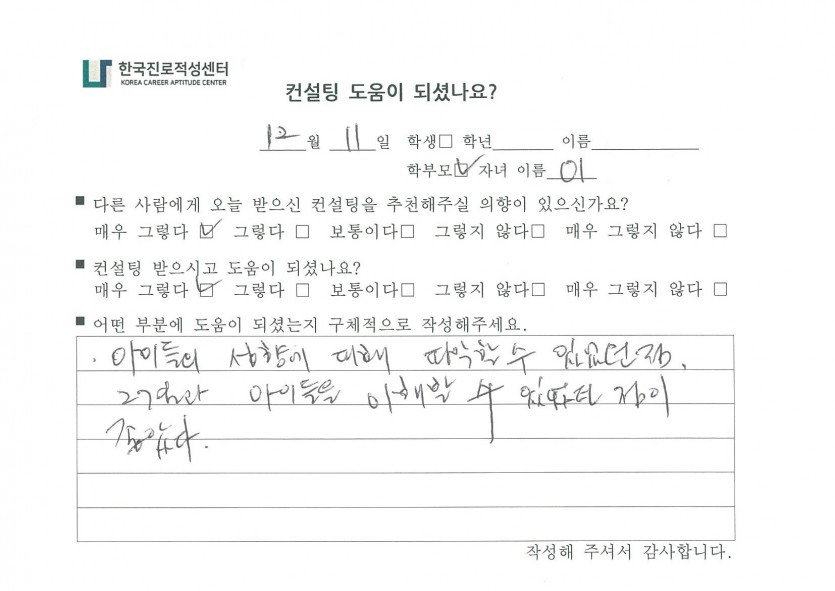 한국진로적성센터
KOREA CAREER APTITUDE CENTER
컨설팅 도움이 되셨나요?
12 월 11 일 학생□ 학년 이름
학부모☑ 자녀 이름 이
■ 다른 사람에게 오늘 받으신 컨설팅을 추천해주실 의향이 있으신가요?
매우 그렇다 ☑ 그렇다 □ 보통이다□ 그렇지 않다□ 매우 그렇지 않다 □
■ 컨설팅 받으시고 도움이 되셨나요?
매우 그렇다 ☑ 그렇다 □ 보통이다□ 그렇지 않다□ 매우 그렇지 않다 □
■ 어떤 부분에 도움이 되셨는지 구체적으로 작성해주세요.
· 아이들의 성향에 대해 파악할 수 있었던 점.
아이들을 이해할 수 있었던 점이
좋았다.
작성해 주셔서 감사합니다.